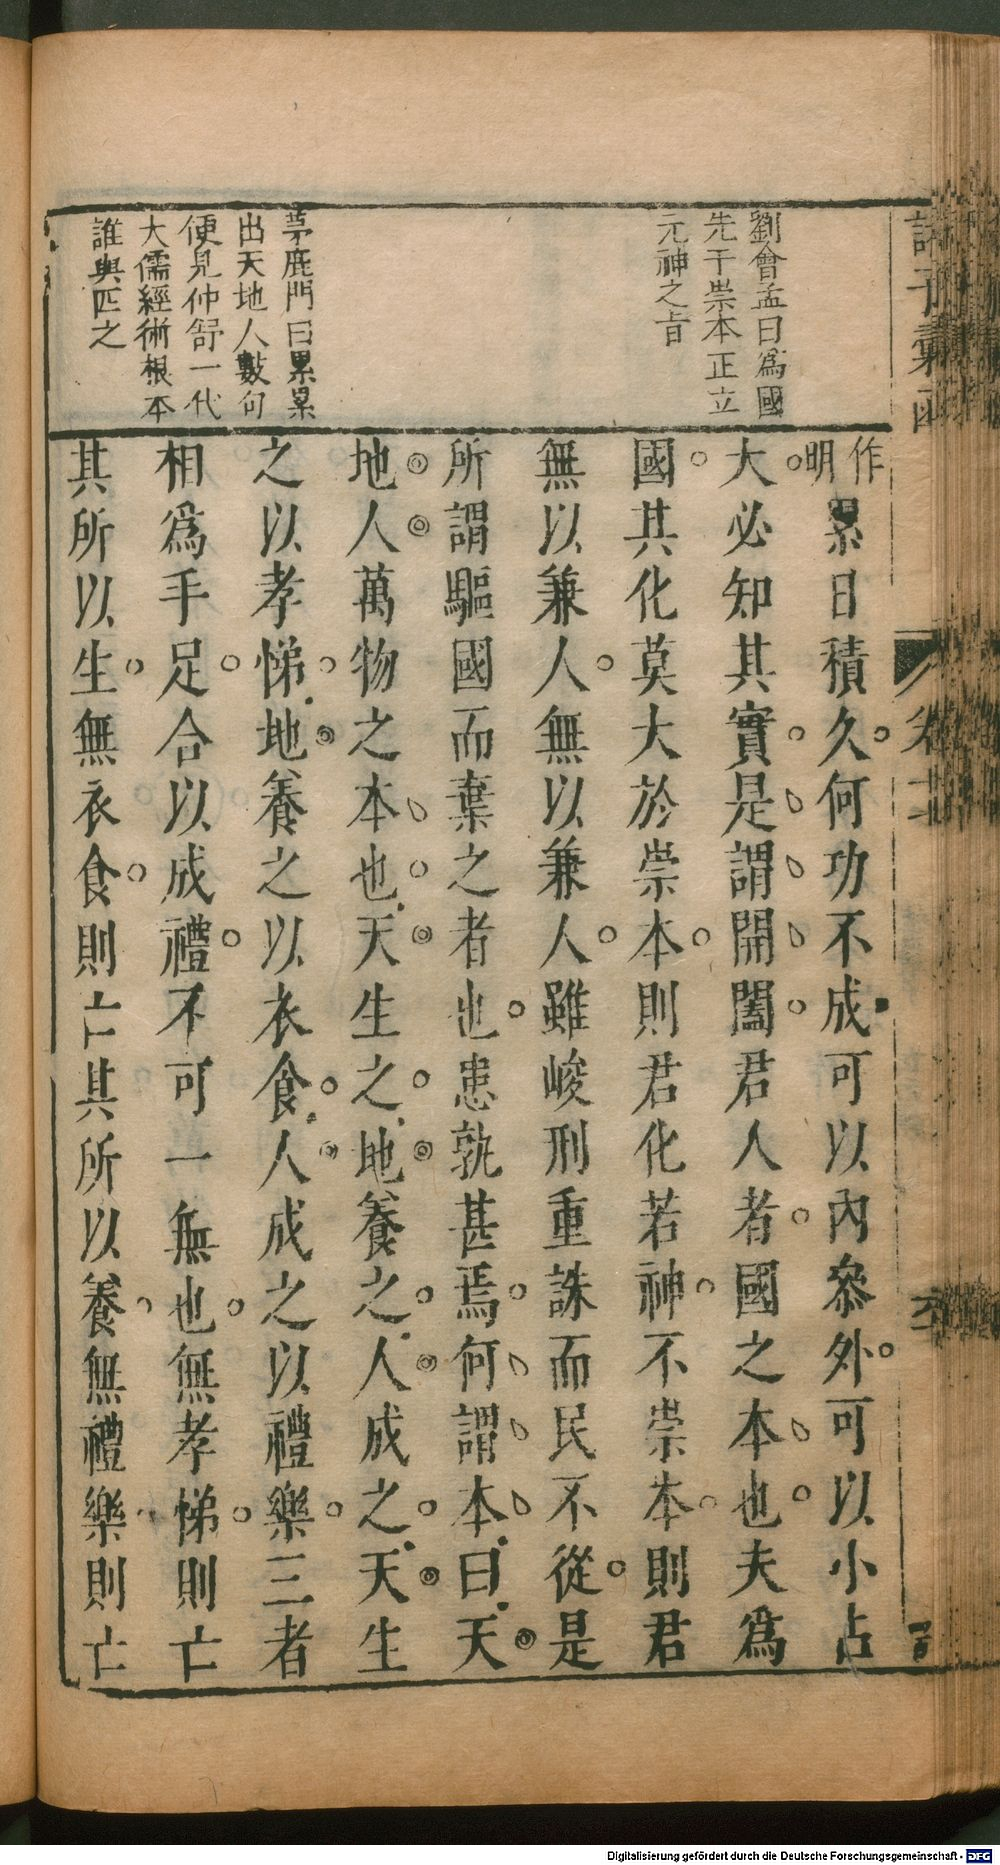 劉會孟曰爲國
先于崇本正立
元神之旨
茅鹿門曰累累
出天地人數句
便見仲舒一代
大儒經術根本
誰與匹之
作明累日積久何功不成可以內參外可以小占
大必知其實是謂開闔君人者國之本也夫爲
國其化莫大於崇本則君化若神不崇本則君
無以兼人無以兼人雖峻刑重誅而民不從是
所謂驅國而棄之者也患孰甚焉何謂本曰天
地人萬物之本也天生之地養之人成之天生
之以孝悌地養之以衣食人成之以禮樂三者
相爲手足合以成禮不可一無也無孝悌則亡
其所以生無衣食則亡其所以養無禮樂則亡
Digitalisierung gefördert durch die Deutsche Forschungsgemeinschaft - DFG